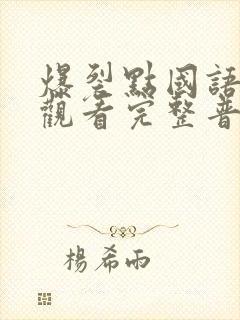 爆裂點國語
觀看完整普
楊希雨